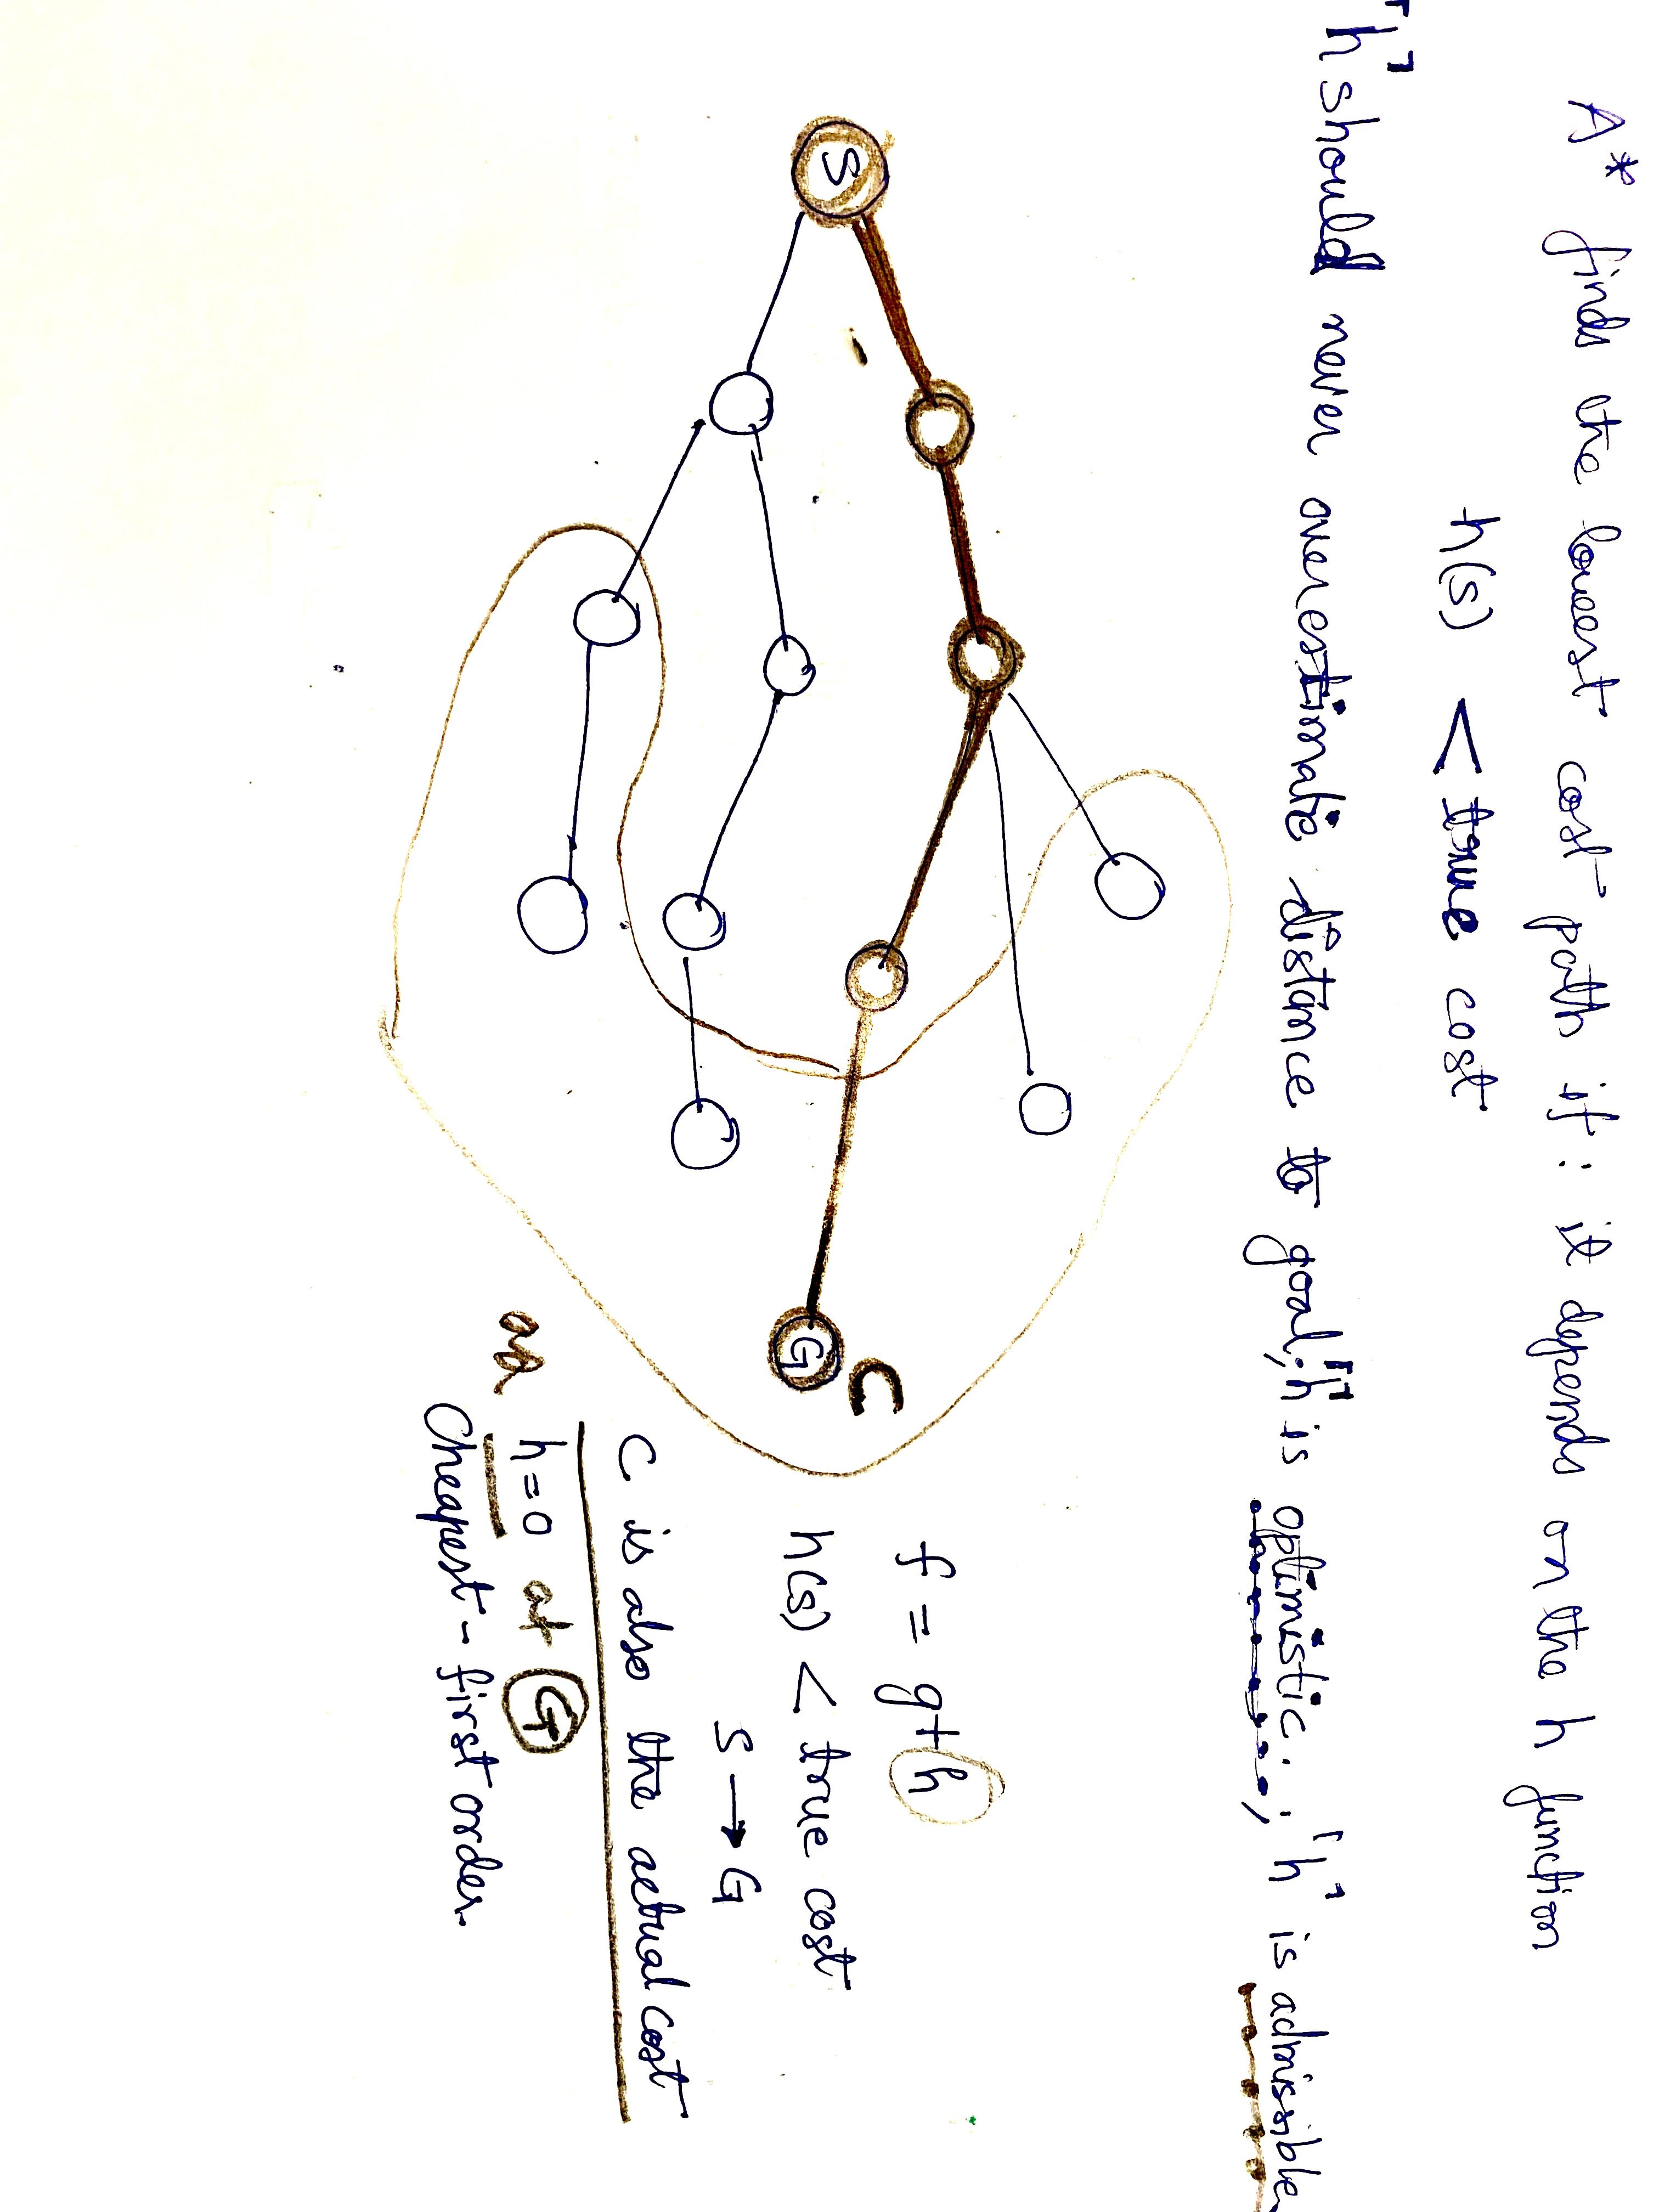 A* finds the lowest cost path if : it depends on the h function
h(s) < true cost
"h" should never overestimate distance to goal; "h" is optimistic. ; 'h' is admissible
S
C
G
f = g+h
h(s) < true cost
S → G
C is also the actual cost
as h=0 at G
Cheapest - first order.